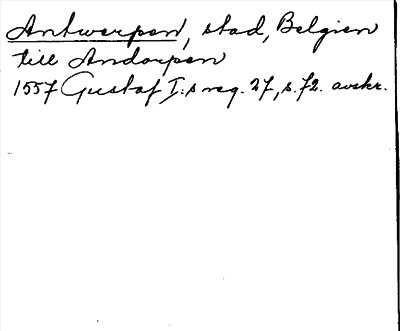 Antwerpen, stad, Belgien
till Andorpen
1557 Gustaf I:s reg. 27, s. 72. avskr.